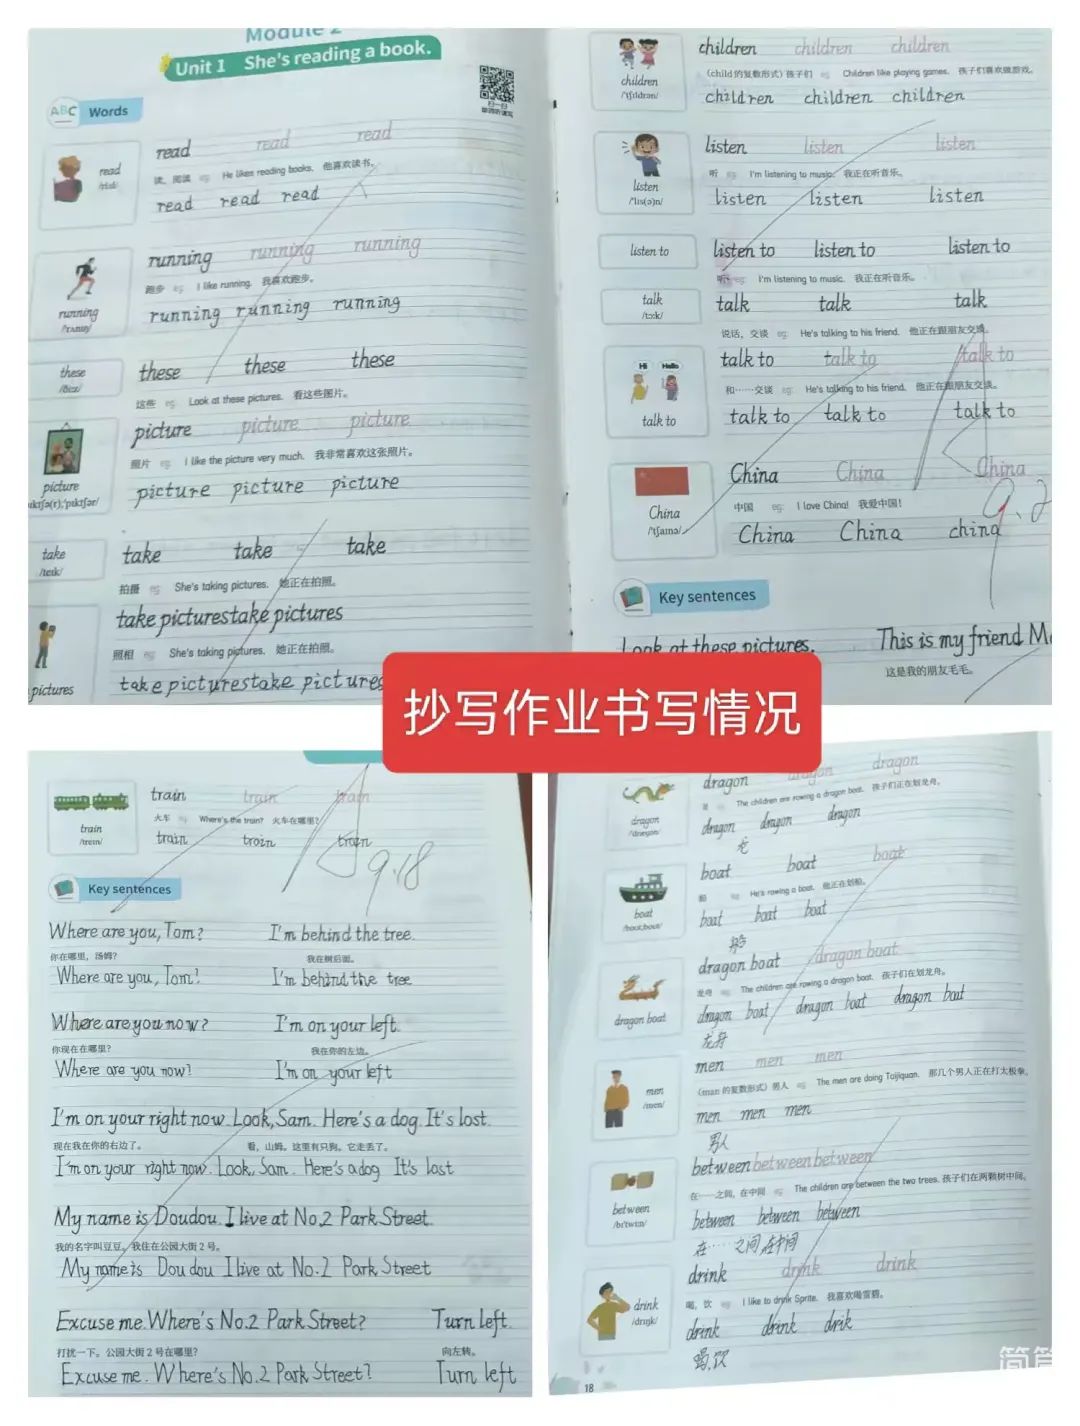 Module 2
Unit 1 She's reading a book.
扫一扫
ABC Words
read read read
read
读，阅读 eg: He likes reading books. 他喜欢读书。
read read read
running running running
跑步 eg: I like running. 我喜欢跑步。
running
/'rʌnɪŋ/
running running running
these
/ðiːz/
these these these
这些 eg: Look at these pictures. 看这些图片。
picture picture picture
照片 eg: I like the picture very much. 我非常喜欢这张照片。
picture
picture picture picture
take
/teɪk/
take take take
拍摄 eg: She's taking pictures. 她正在拍照。
take picturestake pictures
照相 eg: She's taking pictures. 她正在拍照。
pictures
take picturestake pictures
children children children
children
/'tʃɪldrən/
(child的复数形式) 孩子们 eg: Children like playing games. 孩子们喜欢做游戏。
children children children
listen listen listen
听 eg: I'm listening to music. 我正在听音乐。
listen
/'lɪs(ə)n/
listen listen listen
listen to
listen to listen to listen to
听 eg: I'm listening to music. 我正在听音乐。
talk
/tɔːk/
talk talk talk
说话，交谈 eg: He's talking to his friend. 他正在跟朋友交谈。
Hi Hello
talk to talk to talk to
和……交谈 eg: He's talking to his friend. 他正在跟朋友交谈。
talk to
talk to talk to talk to
China China China
中国 eg: I love China! 我爱中国！
China
/'tʃaɪnə/
China China china
9.2
Key sentences
Look at these pictures. This is my friend
这是我的朋友毛毛。
抄写作业书写情况
train train train
火车 eg: Where's the train? 火车在哪里？
train
/treɪn/
train troin train
9.18
Key sentences
Where are you, Tom? I'm behind the tree.
你在哪里，汤姆？ 我在树后面。
Where are you, Tom? I'm behind the tree
Where are you now? I'm on your left.
你现在在哪里？ 我在你的左边。
Where are you now? I'm on your left
I'm on your right now. Look, Sam. Here's a dog. It's lost.
现在我在你的右边了。 看，山姆。这里有只狗。它走丢了。
I'm on your right now. Look, Sam. Here's a dog It's lost
My name is Doudou. I live at No.2 Park Street.
我的名字叫豆豆。我住在公园大街 2 号。
My name is Doudou I live at No.2 Park Street
Excuse me. Where's No.2 Park Street? Turn left.
打扰一下。公园大街 2 号在哪里？ 向左转。
Excuse me. Where's No.2 Park Street? Turn left
dragon dragon dragon
龙 eg: The children are rowing a dragon boat. 孩子们正在划龙舟。
dragon
/'drægən/
dragon dragon dragon
龙
boat boat boat
船 eg: He's rowing a boat. 他正在划船。
boat
boat boat boat
船
dragon boat dragon boat
龙舟 eg: The children are rowing a dragon boat. 孩子们在划龙舟。
dragon boat
dragon boat dragon boat dragon boat
龙舟
men men men
(man 的复数形式) 男人 eg: The men are doing Taijiquan. 那几个男人正在打太极拳。
men
/men/
men men men
男人
between between between
在……之间，在中间 eg: The children are between the two trees. 孩子们在两颗树中间。
between
/bɪ'twiːn/
between between between
在……之间，在中间
drink drink drink
喝，饮 eg: I like to drink Sprite. 我喜欢喝雪碧。
drink
/drɪŋk/
drink drink drik
喝，饮
18